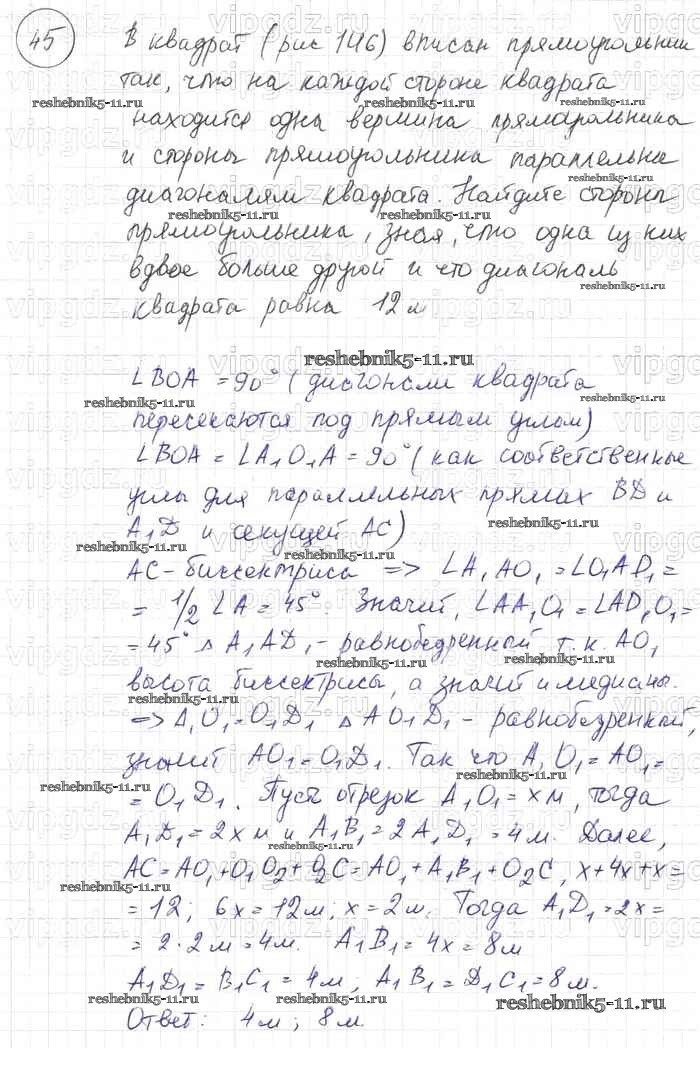 45 В квадрат (рис 146) вписан прямоугольник
так, что на каждой стороне квадрата
находится одна вершина прямоугольника
и стороны прямоугольника параллельны
диагоналям квадрата. Найдите стороны
прямоугольника, зная, что одна из них
вдвое больше другой и что диагональ
квадрата равна 12 м
reshebnik5-11.ru
∠BOA = 90° (диагонали квадрата
пересекаются под прямым углом)
∠BOA = ∠A₁O₁A = 90° (как соответственные
углы для параллельных прямых BD и
A₁D и секущей AC)
AC - биссектриса => ∠A₁AO₁ = ∠O₁AD₁ =
= 1/2 ∠A = 45°. Значит, ∠AA₁O₁ = ∠AD₁O₁ =
= 45° ▵ A₁AD₁ - равнобедренный т.к. AO₁
высота биссектрисы, а значит и медианы.
=> A₁O₁ = O₁D₁ ▵ AO₁D₁ - равнобедренный,
значит AO₁ = O₁D₁. Так что A₁O₁ = AO₁ =
= O₁D₁. Пусть отрезок A₁O₁ = x м, тогда
A₁D₁ = 2x м и A₁B₁ = 2A₁D₁ = 4м. Далее,
AC = AO₁ + O₁O₂ + O₂C = AO₁ + A₁B₁ + O₂C, x + 4x + x =
= 12; 6x = 12м; x = 2м. Тогда A₁D₁ = 2x =
= 2·2м = 4м. A₁B₁ = 4x = 8м
A₁D₁ = B₁C₁ = 4м; A₁B₁ = D₁C₁ = 8м.
reshebnik5-11.ru
Ответ: 4м; 8м.